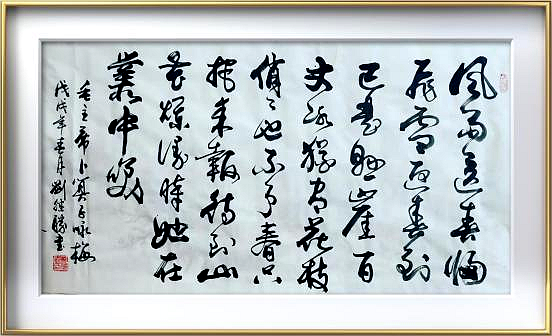 風雨送春归
飛雪迎春到
已是悬崖百
丈冰犹有花枝
俏〻也不争春只
把来報待到山
花烂漫时她在
叢中笑
毛主席卜算子咏梅
戊戌年春月劉继勝書